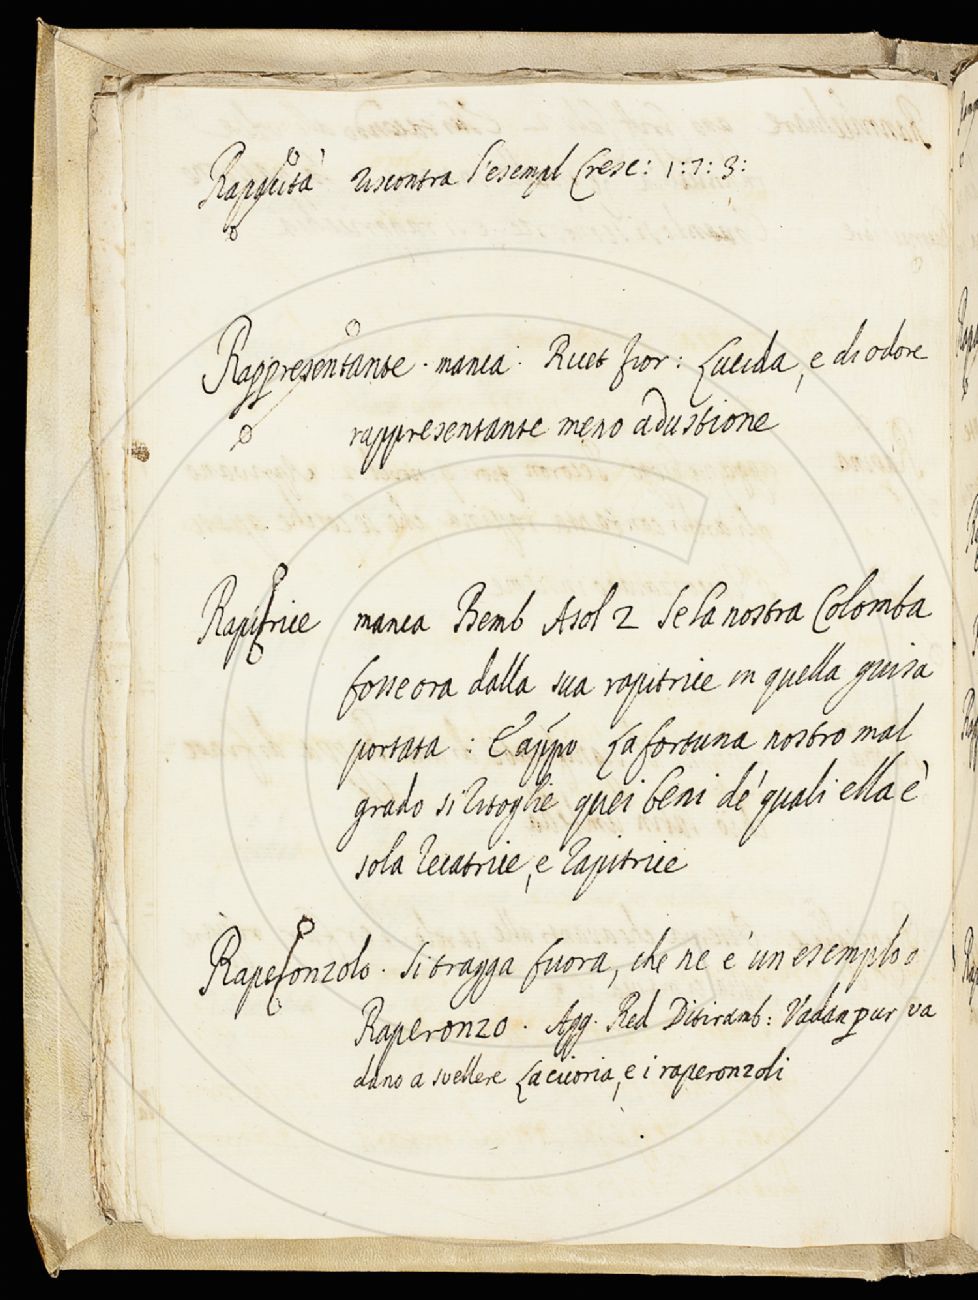 Rapacità riscontra l'esempl Cresc: 1:7:3:
Rappresentante. manca. Ricet fior: Lucida, e di odore
rappresentante meno adustione
Rapitrice manca Bemb Asol 2 Se la nostra Colomba
fosse ora dalla sua rapitrice in quella guisa
portata: E appo La fortuna nostro mal
grado si ritoglie quei beni de' quali ella è
sola recatrice, e rapitrice
Raperonzolo. Si tragga fuora, che ne è un esemplo
Raperonzo. Agg. Red Ditiramb: Vadan pur va
dano a svellere La cicoria, e i raperonzoli